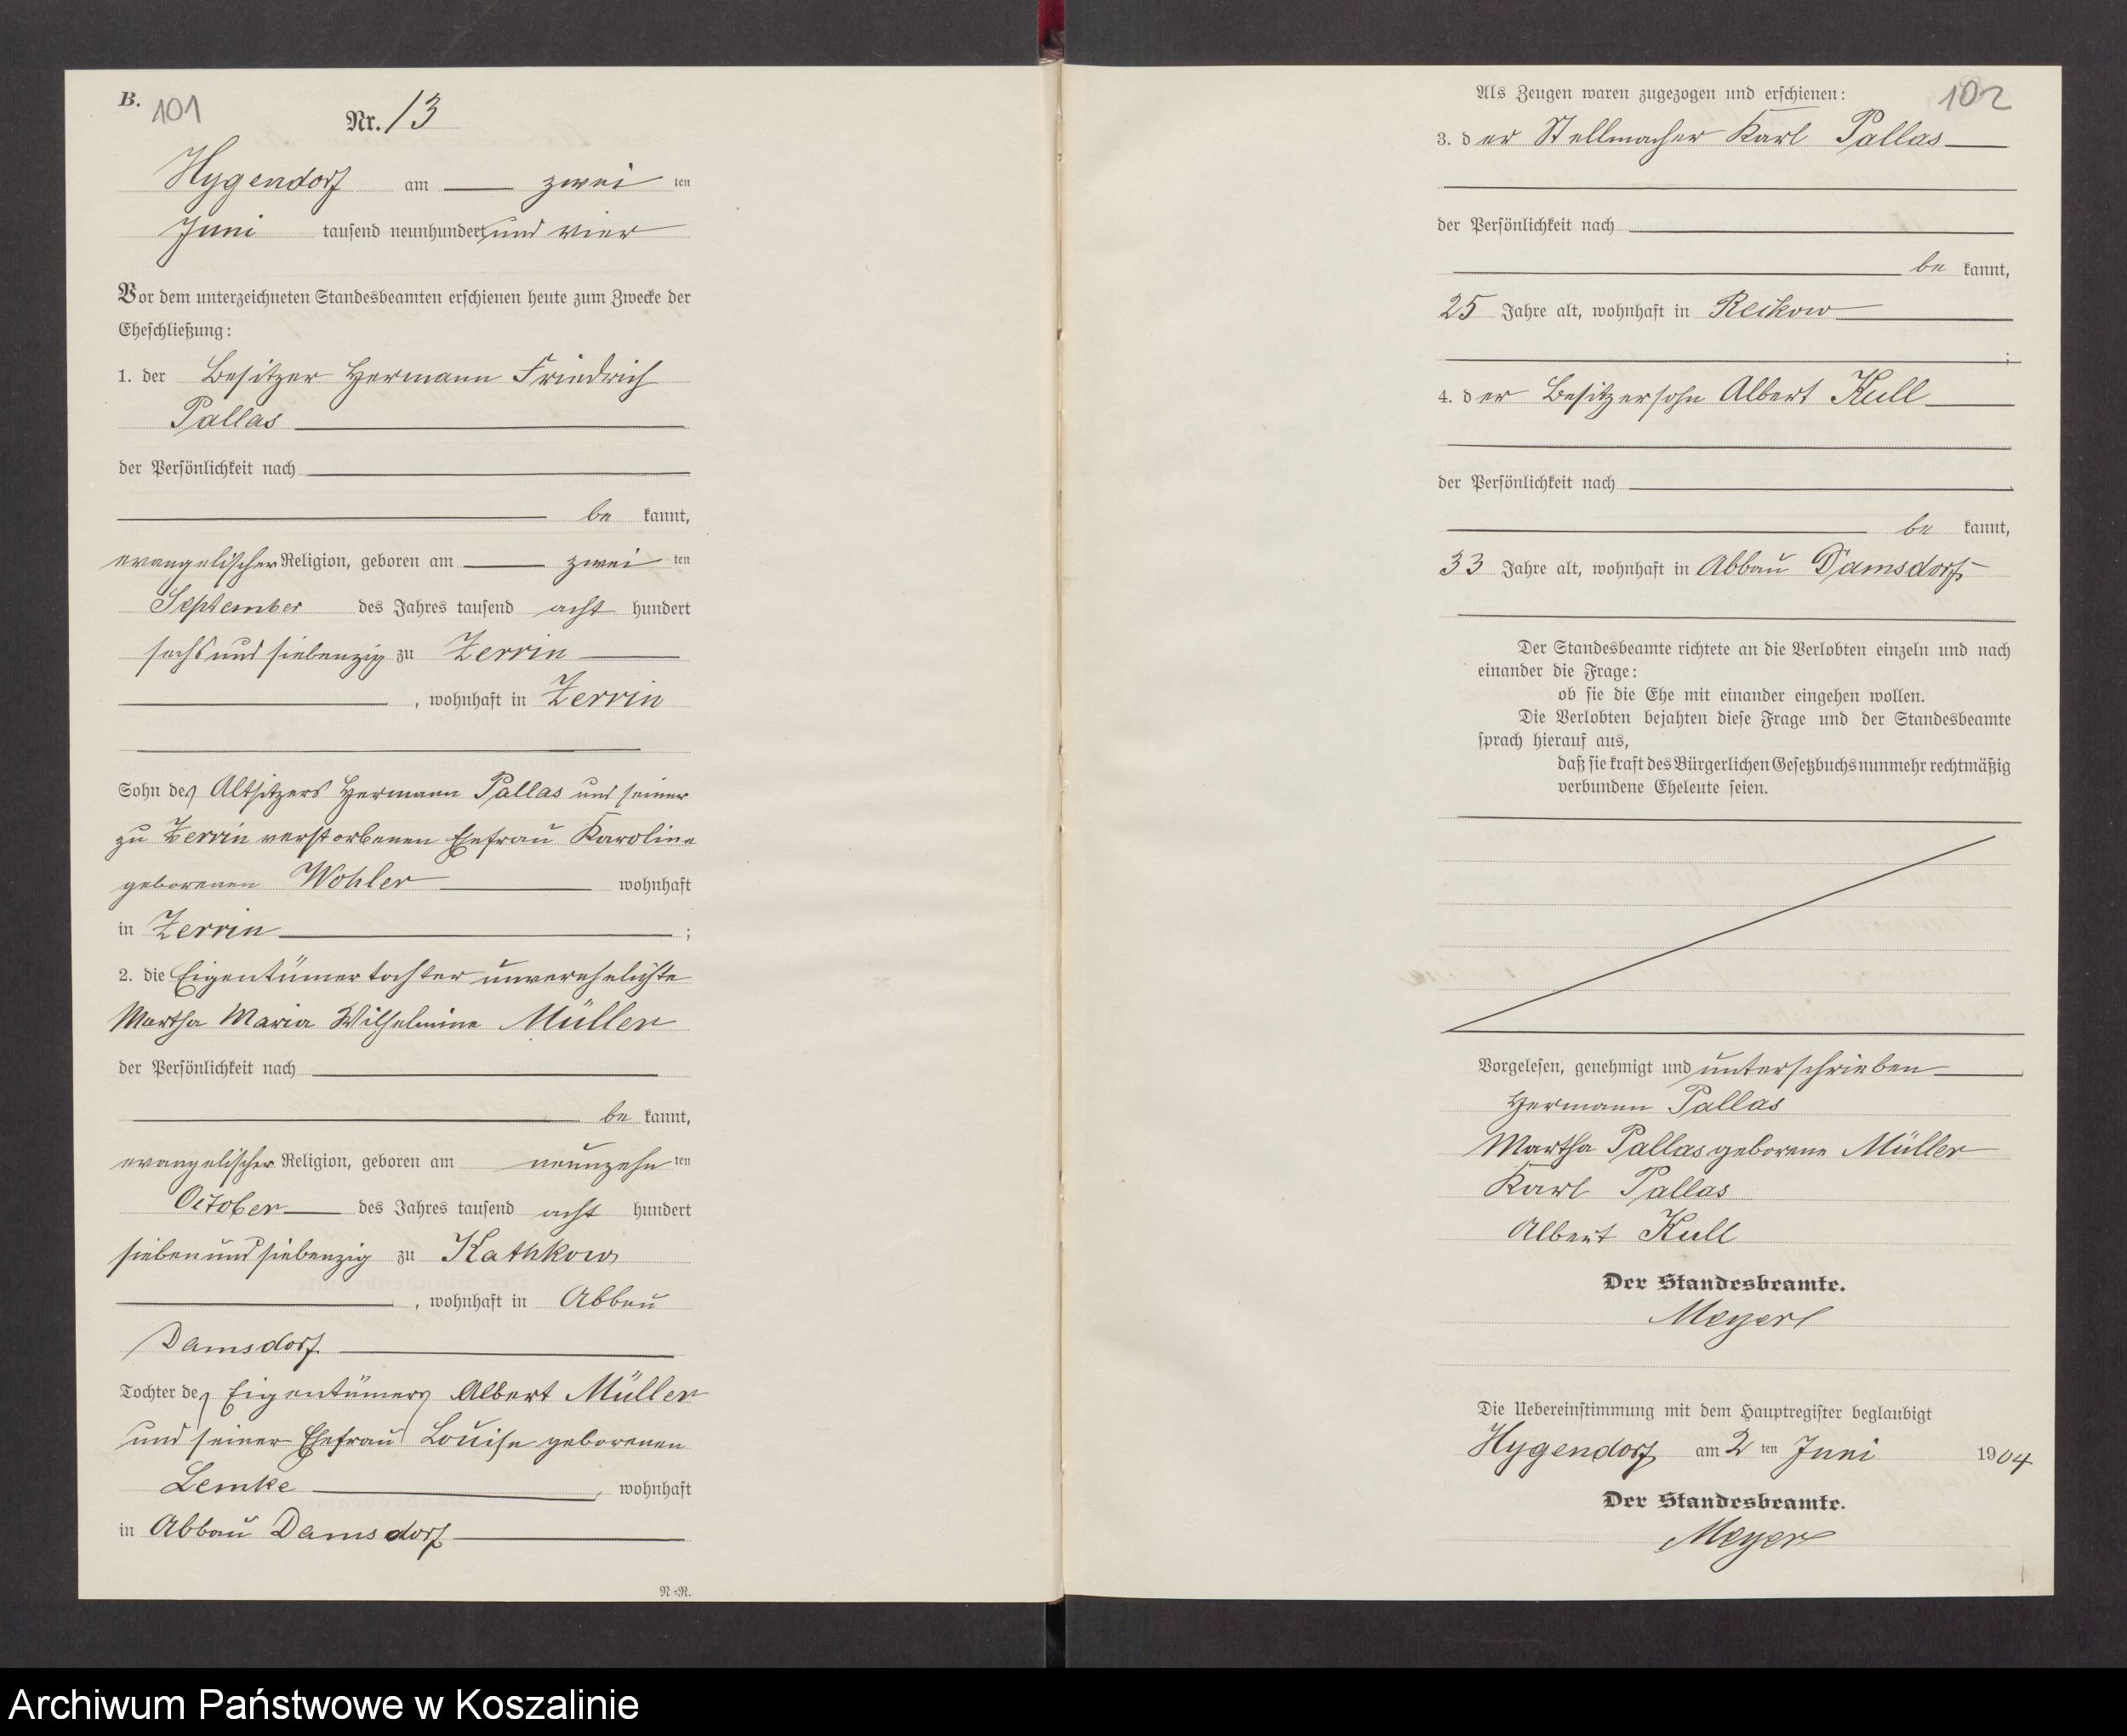 B. 101
Nr. 13
Hygendorf am zwei ten
Juni tausend neunhundert und vier
Vor dem unterzeichneten Standesbeamten erschienen heute zum Zwecke der
Eheschließung:
1. der Besitzer Hermann Friedrich
Pallas
der Persönlichkeit nach
be kannt,
evangelischer Religion, geboren am zwei ten
September des Jahres tausend acht hundert
sechs und siebenzig zu Zerrin
, wohnhaft in Zerrin
Sohn des Altsitzers Hermann Pallas und seiner
zu Zerrin verstorbenen Ehefrau Karoline
geborenen Wohler wohnhaft
in Zerrin ;
2. die Eigentümertochter unverehelichte
Martha Maria Wilhelmine Müller
der Persönlichkeit nach
be kannt,
evangelischer Religion, geboren am neunzehn ten
October des Jahres tausend acht hundert
sieben und siebenzig zu Kathkow
, wohnhaft in Abbau
Damsdorf
Tochter des Eigentümers Albert Müller
und seiner Ehefrau Louise geborenen
Lemke , wohnhaft
in Abbau Damsdorf
N=R.
Als Zeugen waren zugezogen und erschienen: 102
3. der Stellmacher Karl Pallas
der Persönlichkeit nach
be kannt,
25 Jahre alt, wohnhaft in Reikow
;
4. der Besitzersohn Albert Kull
der Persönlichkeit nach
be kannt,
33 Jahre alt, wohnhaft in Abbau Damsdorf
Der Standesbeamte richtete an die Verlobten einzeln und nach
einander die Frage:
ob sie die Ehe mit einander eingehen wollen.
Die Verlobten bejahten diese Frage und der Standesbeamte
sprach hierauf aus,
daß sie kraft des Bürgerlichen Gesetzbuchs nunmehr rechtmäßig
verbundene Eheleute seien.
Vorgelesen, genehmigt und unterschrieben
Hermann Pallas
Martha Pallas geborene Müller
Karl Pallas
Albert Kull
Der Standesbeamte.
Meyer
Die Uebereinstimmung mit dem Hauptregister beglaubigt
Hygendorf am 2 ten Juni 1904
Der Standesbeamte.
Meyer
Archiwum Państwowe w Koszalinie